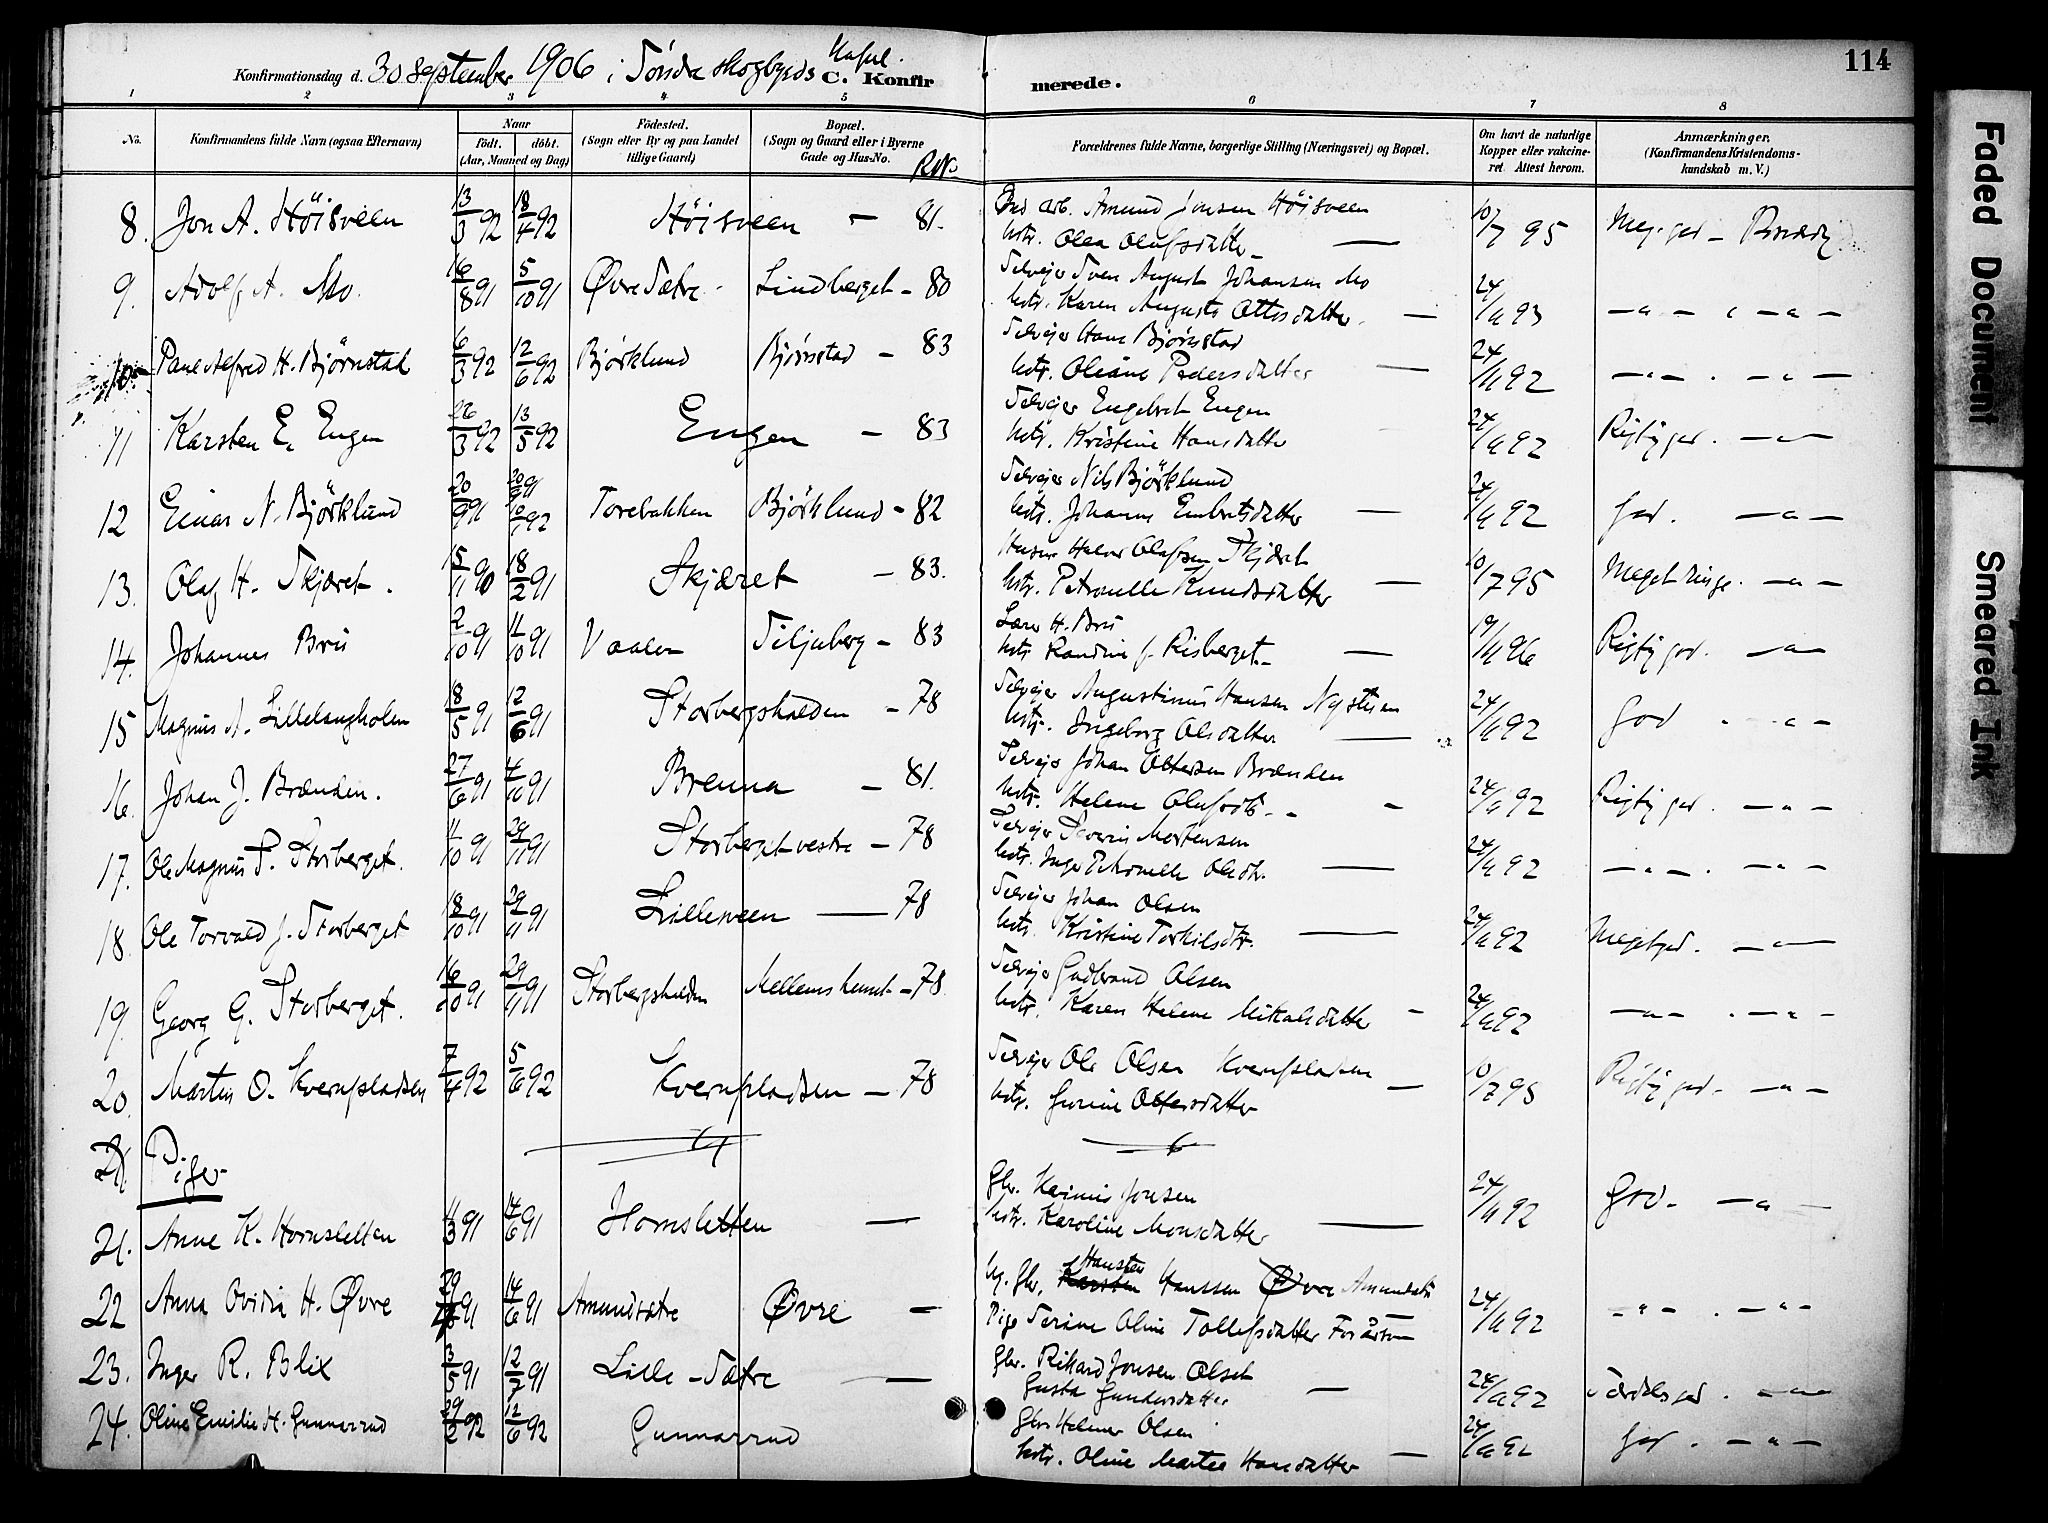 114
Konfirmationsdag d. 30 September 1906 i Söndre Skogbygds C. Konfirmerede.
1 2 3 4 5 6 7 8
No. Konfirmandens fulde Navn (ogsaa Efternavn) Naar Födt. döbt. (Aar, Maaned og Dag) Födested. (Sogn eller By og paa Landet tillige Gaard) Bopæl. (Sogn og Gaard eller i Byerne Gade og Hus-No. Forældrenes fulde Navne, borgerlige Stilling (Næringsvei) og Bopæl. Om havt de naturlige Kopper eller vakcineret. Attest herom. Anmærkninger. (Konfirmandens Kristendomskundskab m. V.)
8. Jon A. Höisveen 13/3 92 18/4 92 Höisveen — 81. Amund Jonsen Höisveen 10/7 95
Hstr. Olea Olufsdatter —
9. Adolf A. Mo. 16/8 91 5/10 91 Øvre Sætre Lindberget — 80 Selvejer Sven August Johansen Mo 24/
Hstr. Karen Augusta Ottosdatter — 93 — " — " — " —
10 H. Björnstad 6/3 92 12/6 92 Björklund Bjørnstad — 83 Selvejer Hans Bjørnstad 24/
Hstr. Oliane Pedersdatter — 92 — " — . — " —
11 Karsten E. Engen 26/3 92 13/5 92 Engen — 83 Selvejer Engebret Engen 24/
Hstr. Kristine Hansdatter 92 Rigtig god. — " —
12 Einar N. Björklund 20/9 91 Torebakken Björklund — 82 Selvejer Nils Björklund 24/
Hstr. Johanne Embretsdatter — 92 God. — " —
13. Olaf H. Skjæret. 15/11 90 18/2 91 Skjæret — 83. Halvor Olafsen Skjæret 10/7 95
Hstr. Petronelle Knudsdatter — Meget ringe. — " —
14. Johannes Bru 2/10 91 11/10 91 Vaaler Siljuberg — 83 Lærer H. Bru 19/
Hstr. Randine f. Risberget — 96 Rigtig god. — " —
15 Magnus A. Lillelangholen 18/5 91 12/6 91 Storbergshalden — 78 Selvejer Augustinus Hansen Nysteen 24/
Hstr. Ingeborg Olsdatter — 92 God . — " —
16. Johan J. Brænden. 27/6 91 4/10 91 Brenna — 81. Selvejer Johan Ottersen Brænden 24/
Hstr. Helene Olufsdt. — 92 Rigtig god. — " —
17. Ole Magnus S. Storberget. 11/10 91 29/11 91 Storberget vestre — 78 Selvejer Severin Mortensen 24/
Hstr. Inger Petronelle Olsdtr. — 92 — " — . — " —
18. Ole Torvald J. Storberget 18/10 91 29/11 91 Lilleveen — 78 Selvejer Johan Olsen 24/
Hstr. Kristine Torkilsdtr. — 92 Meget god. — " —
19. Georg G. Storberget. 16/10 91 29/11 91 Storbergshalden — 78. Selvejer Gudbrand Olsen 24/
Hstr. Karen Helene Mikalsdatter — 92 — " — . — " —
20. Martin O. Kvernpladsen 7/4 92 5/6 92 Kvernpladsen — 78 Selvejer Ole Olsen Kvernpladsen 10/7 95
Hstr. Gurine Ottersdatter — Rigtig god. — " —
21. Piger
21. Anne K. Hornsletten 11/3 91 14/6 91 Hornsletten — Gbr. Jonsen 24/
Hstr. Karoline Monsdatter — 92 God. — " —
22 Anna Ovidia H. Øvre 91 14/6 91 Amundsætre Øvre — Ug. Gbr. Hansten Hanssen Øvre 24/
Pige Serine Oline Tollefsdatter 92 — " — . — " —
23. Inger R. Blix 3/5 91 12/7 91 Lille-Sætre — Gbr. Rikard Jonsen Olset 24/
Gusta Gundersdatter — 92 Særdeles god. — " —
24. Oline Emilie H. Gunnarrud 29/2 92 12/6 92 Gunnarrud Gbr. Helmer Olsen 24/
Hstr. Oline Martea Hansdatter — God. — " —
Faded Document
Smeared Ink